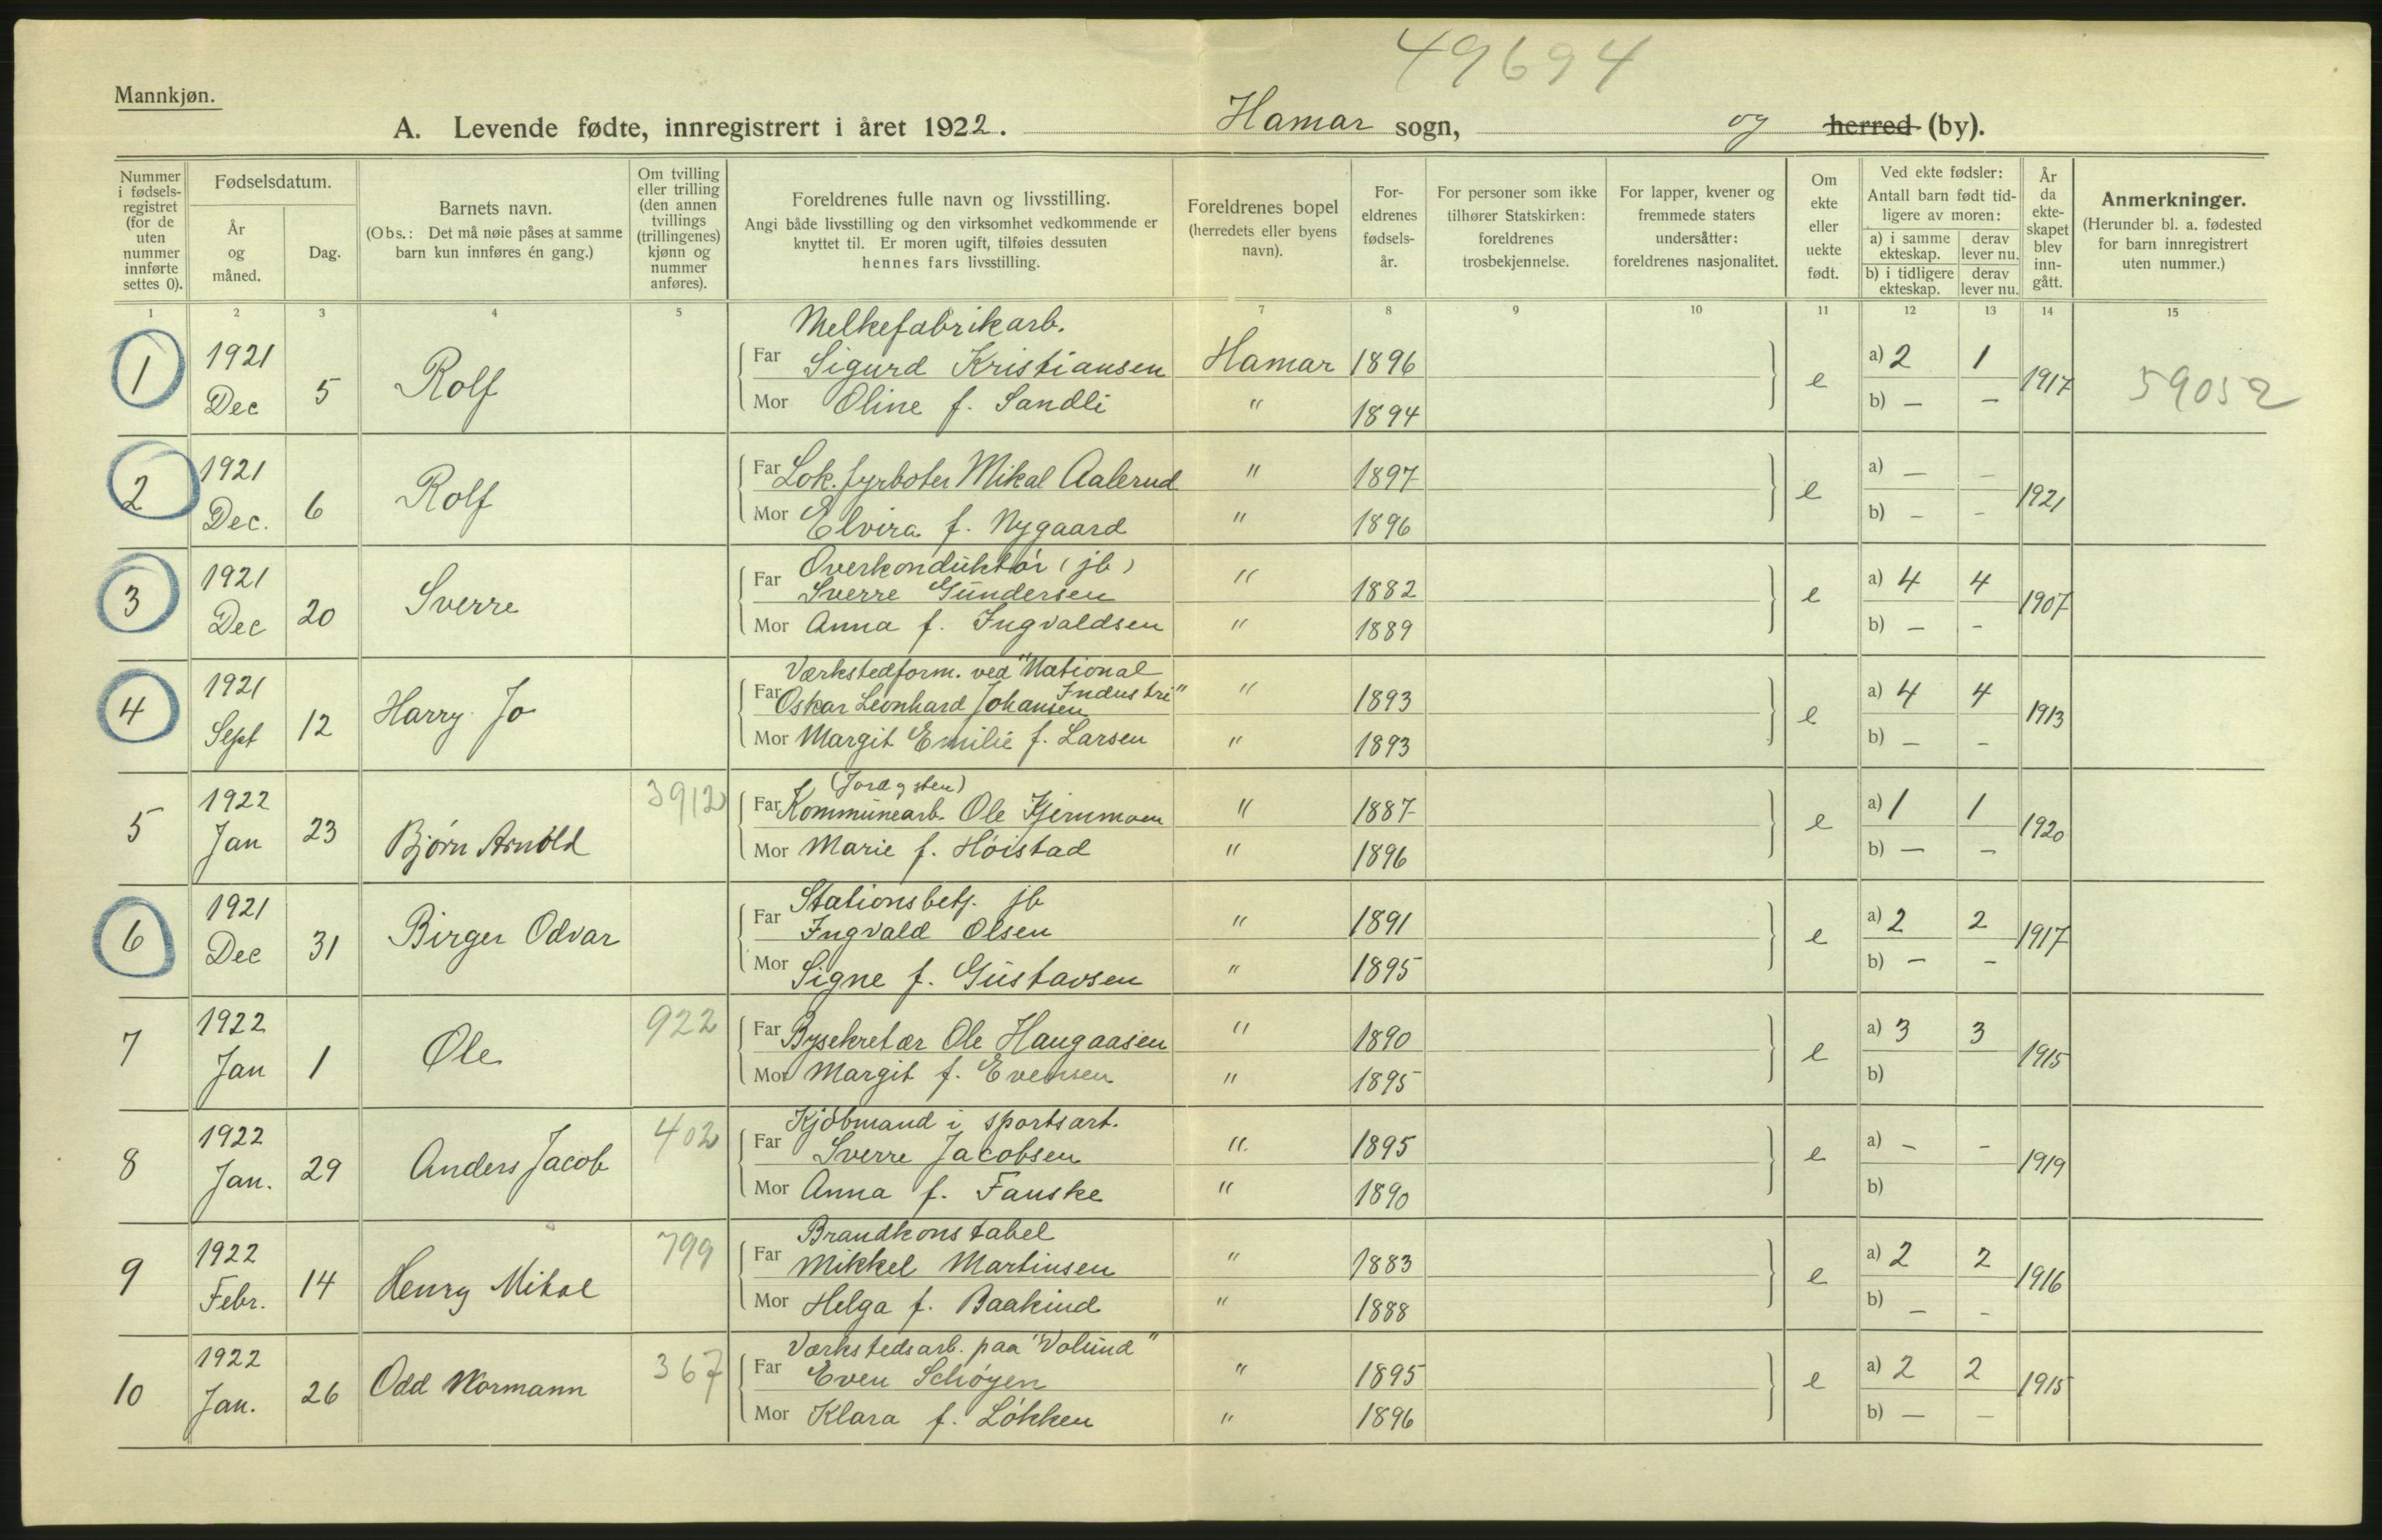 49694
Mannkjøn.
A. Levende fødte, innregistrert i året 1922. Hamar sogn, og herred (by).
Nummer i fødsels-registret (for de uten nummer innførte settes 0).
Fødselsdatum.
År og måned.
Dag.
Barnets navn.
(Obs.: Det må nøie påses at samme barn kun innføres én gang.)
Om tvilling eller trilling (den annen tvillings (trillingenes) kjønn og nummer anføres).
Foreldrenes fulle navn og livsstilling.
Angi både livsstilling og den virksomhet vedkommende er knyttet til. Er moren ugift, tilføies dessuten hennes fars livsstilling.
Foreldrenes bopel (herredets eller byens navn).
For-eldrenes fødsels-år.
For personer som ikke tilhører Statskirken: foreldrenes trosbekjennelse.
For lapper, kvener og fremmede staters undersåtter: foreldrenes nasjonalitet.
Om ekte eller uekte født.
Ved ekte fødsler:
Antall barn født tid-ligere av moren:
a) i samme ekteskap. derav lever nu.
b) i tidligere ekteskap. derav lever nu.
År da ekte-skapet blev inn-gått.
Anmerkninger.
(Herunder bl. a. fødested for barn innregistrert uten nummer.)
1 2 3 4 5 7 8 9 10 11 12 13 14 15
Melkefabrikarb.
1 1921 Dec 5 Rolf Far Sigurd Kristiansen Hamar 1896 e a) 2 1 1917 59052
Mor Oline f. Sandli " 1894 b) — —
2 1921 Dec. 6 Rolf Far Lok. fyrbøter Mikal Aalerud " 1897 e a) — — 1921
Mor Elvira f. Nygaard " 1896 b) — —
Overkonduktør (jb)
3 1921 Dec 20 Sverre Far Sverre Gundersen " 1882 e a) 4 4 1907
Mor Anna f. Ingvaldsen " 1889 b) — —
Værkstedform. ved "National
Industri"
4 1921 Sept 12 Harry Jo Far Oskar Leonhard Johansen " 1893 e a) 4 4 1913
Mor Margit Emilie f. Larsen " 1893 b) — —
(Jord g sten)
5 1922 Jan 23 Bjørn Arnold 3912 Far Kommunearb. Ole " 1887 e a) 1 1 1920
Mor Marie f. Høistad " 1896 b) — —
Stationsbetj. jb
6 1921 Dec 31 Birger Odvar Far Ingvald Olsen " 1891 e a) 2 2 1917
Mor Signe f. Gustavsen " 1895 b) — —
7 1922 Jan 1 Ole 922 Far Bysekretær Ole Haugaasen " 1890 e a) 3 3 1915
Mor Margit f. Evensen " 1895 b)
Kjøbmand i sportsart.
8 1922 Jan. 29 Anders Jacob 402 Far Sverre Jacobsen " 1895 e a) — — 1919
Mor Anna f. Fauske " 1890 b)
Brandkonstabel
9 1922 Febr. 14 Henry Mikal 799 Far Mikkel Martinsen " 1883 e a) 2 2 1916
Mor Helga f. Baakind " 1888 b) — —
Værkstedsarb. paa "Volund"
10 1922 Jan. 26 Odd Normann 367 Far Even Schøyen " 1895 e a) 2 2 1915
Mor Klara f. Løkken " 1896 b) — —